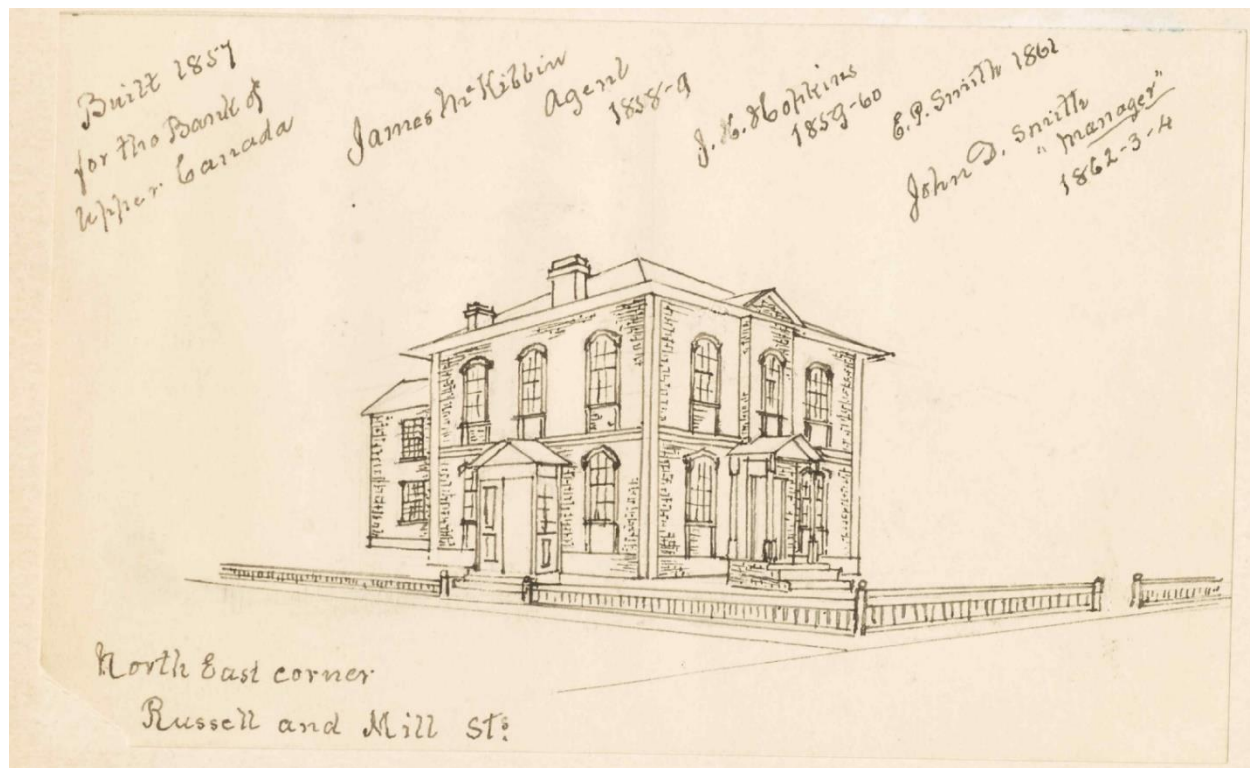 Built 1857
for the Bank of
Upper Canada
James McKibbin
Agent
1858-9
J. H. Hopkins
1859-60
E. P. Smith 1861
John D. Smith
"Manager"
1862-3-4
North East corner
Russell and Mill Sts